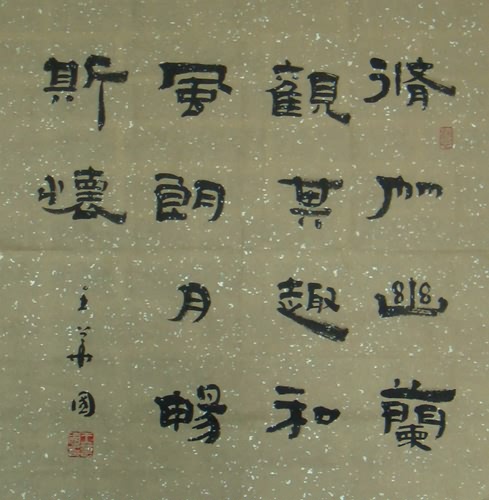 脩竹幽蘭
觀其趣和
風朗月暢
斯懷
王華國